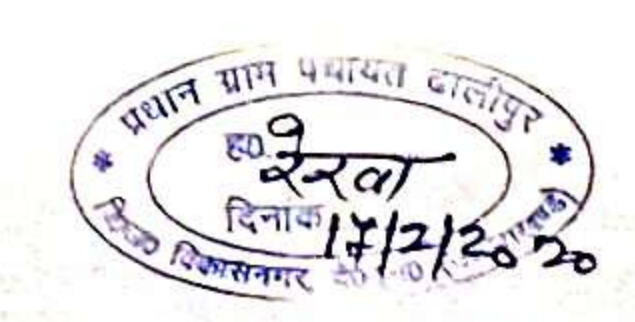 * प्रधान ग्राम पंचायत ढालीपुर *
ह0
रेखा
दिनांक 17/2/2020
वि0ख0 विकासनगर दे0दून